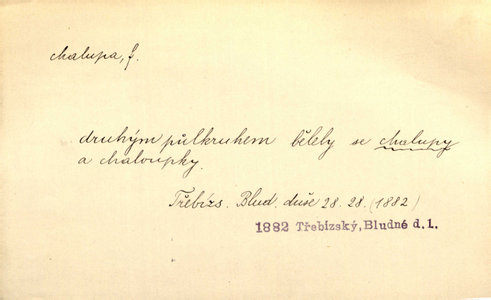 chalupa, f.
druhým půlkruhem bělely se chalupy
a chaloupky.
Třebízs. Blud. duše 28. 28. (1882)
1882 Třebízský, Bludné d. 1.